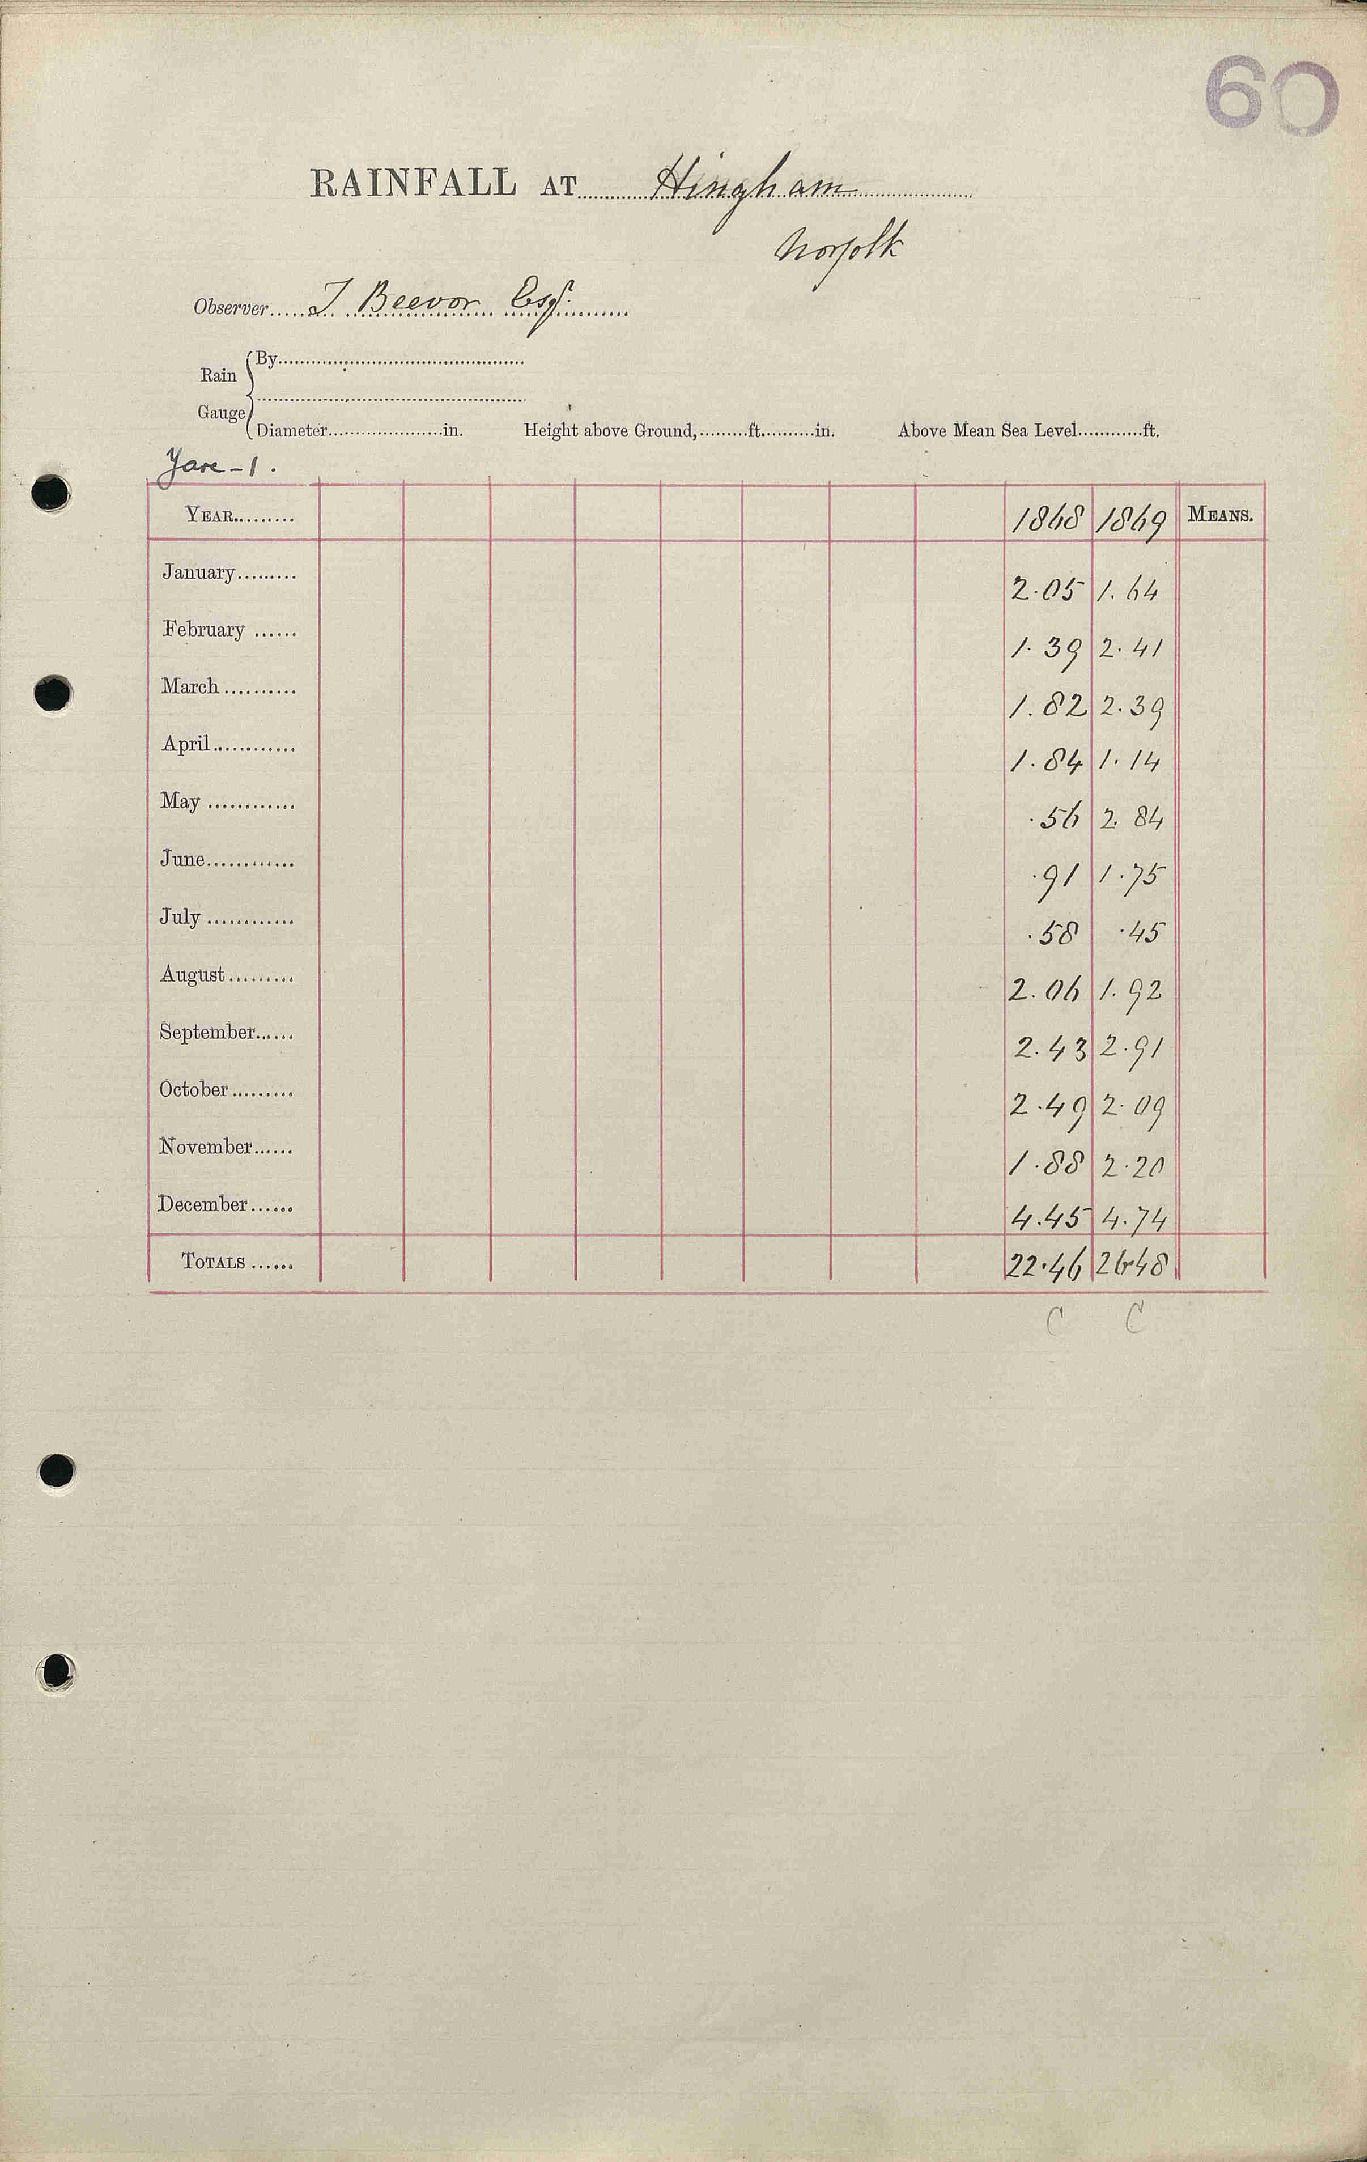 60
RAINFALL AT Hingham
Norfolk
Observer J Beevor Esq.
Rain Gauge
By
Diameter in. Height above Ground, ft. in. Above Mean Sea Level ft.
Yare - 1.
YEAR 1868 1869 MEANS.
January 2.05 1.64
February 1.39 2.41
March 1.82 2.39
April 1.84 1.14
May .56 2.84
June .91 1.75
July .58 .45
August 2.06 1.92
September 2.43 2.91
October 2.49 2.09
November 1.88 2.20
December 4.45 4.74
TOTALS 22.46 26.48
C C